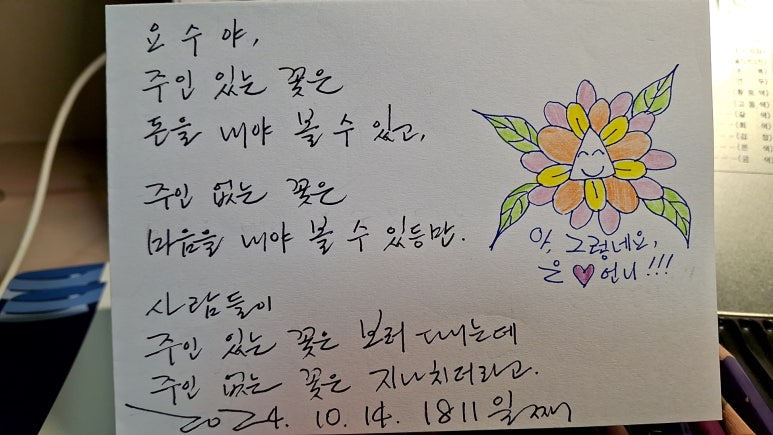 요수야,
주인 있는 꽃은
돈을 내야 볼 수 있고,
주인 없는 꽃은
마음을 내야 볼 수 있등만.
사람들이
주인 있는 꽃은 보러 다니는데
주인 없는 꽃은 지나치더라고.
2024. 10. 14. 1811일째
아, 그렇네요,
은♥언니!!!
황토색
고동색
갈색
회색
검정
은색
금색